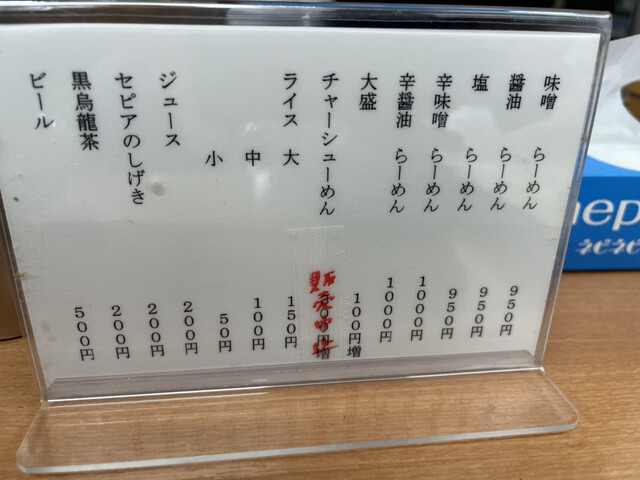 味噌 らーめん 950円
醤油 らーめん 950円
塩 らーめん 950円
辛味噌 らーめん 1000円
辛醤油 らーめん 1000円
大盛 100円増
チャーシューめん 円増
ライス 大 150円
中 100円
小 50円
ジュース 200円
セピアのしげき 200円
黒烏龍茶 200円
ビール 500円
nep
ネピネピ